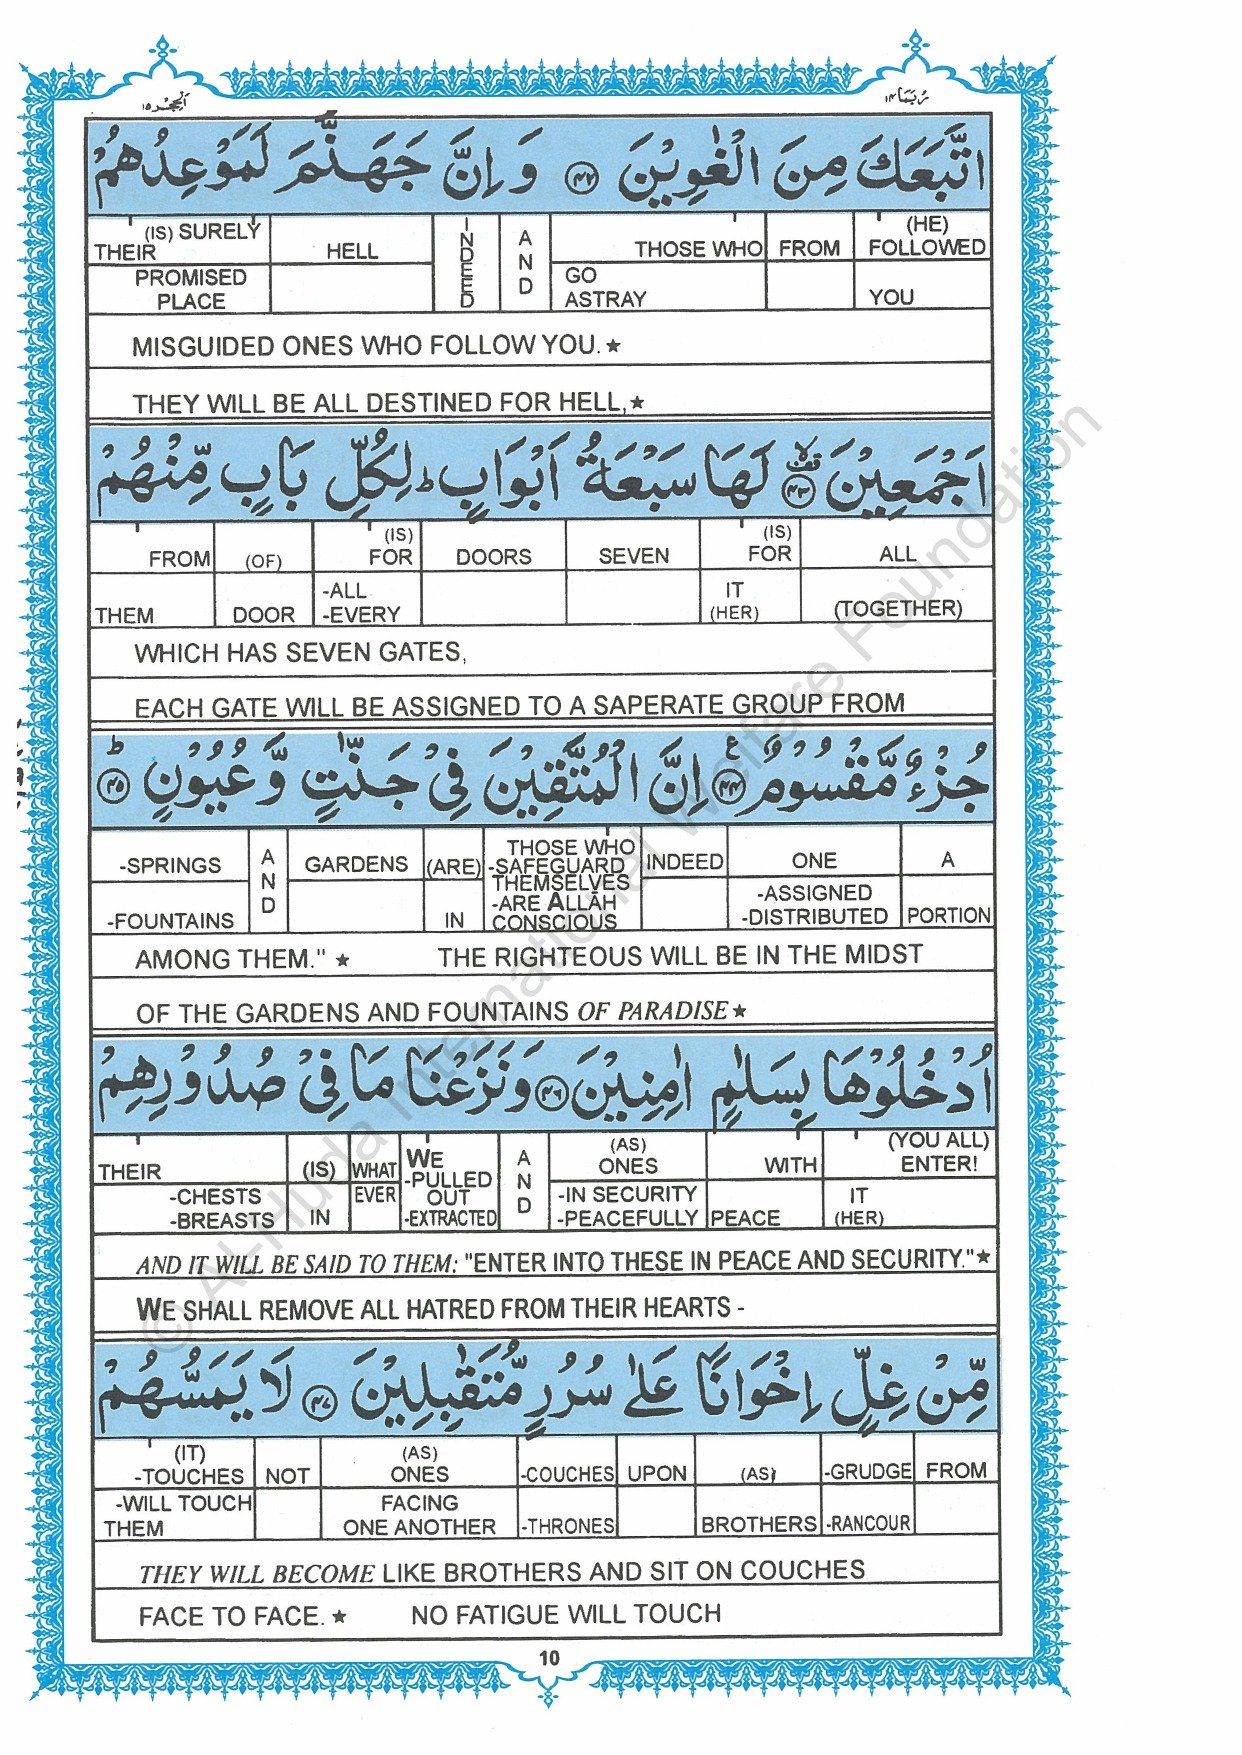 رُبَمَا ١٤
اَلْحِجْر ١٥
اتَّبَعَكَ مِنَ الْغٰوِيْنَ ﴿٤٢﴾ وَ اِنَّ جَهَنَّمَ لَمَوْعِدُهُمْ
(IS) SURELY THEIR HELL INDEED AND THOSE WHO FROM (HE) FOLLOWED
PROMISED PLACE GO ASTRAY YOU
MISGUIDED ONES WHO FOLLOW YOU.★
THEY WILL BE ALL DESTINED FOR HELL,★
اَجْمَعِيْنَ ﴿٤٣﴾ لَهَا سَبْعَةُ اَبْوَابٍ ط لِكُلِّ بَابٍ مِّنْهُمْ
FROM (OF) (IS) FOR DOORS SEVEN (IS) FOR ALL
THEM DOOR -ALL -EVERY IT (HER) (TOGETHER)
WHICH HAS SEVEN GATES,
EACH GATE WILL BE ASSIGNED TO A SAPERATE GROUP FROM
جُزْءٌ مَّقْسُوْمٌ ﴿٤٤﴾ ع اِنَّ الْمُتَّقِيْنَ فِيْ جَنّٰتٍ وَّ عُيُوْنٍ ﴿٤٥﴾ ط
-SPRINGS AND GARDENS (ARE) THOSE WHO -SAFEGUARD THEMSELVES -ARE ALLĀH CONSCIOUS INDEED ONE A
-FOUNTAINS IN -ASSIGNED -DISTRIBUTED PORTION
AMONG THEM." ★ THE RIGHTEOUS WILL BE IN THE MIDST
OF THE GARDENS AND FOUNTAINS OF PARADISE★
اُدْخُلُوْهَا بِسَلٰمٍ اٰمِنِيْنَ ﴿٤٦﴾ وَ نَزَعْنَا مَا فِيْ صُدُوْرِهِمْ
THEIR (IS) WHAT EVER WE -PULLED OUT -EXTRACTED AND (AS) ONES WITH (YOU ALL) ENTER!
-CHESTS -BREASTS IN -IN SECURITY -PEACEFULLY PEACE IT (HER)
AND IT WILL BE SAID TO THEM: "ENTER INTO THESE IN PEACE AND SECURITY."★
WE SHALL REMOVE ALL HATRED FROM THEIR HEARTS -
مِّنْ غِلٍّ اِخْوَانًا عَلٰى سُرُرٍ مُّتَقٰبِلِيْنَ ﴿٤٧﴾ لَا يَمَسُّهُمْ
(IT) -TOUCHES NOT (AS) ONES -COUCHES UPON (AS) -GRUDGE FROM
-WILL TOUCH THEM FACING ONE ANOTHER -THRONES BROTHERS -RANCOUR
THEY WILL BECOME LIKE BROTHERS AND SIT ON COUCHES
FACE TO FACE. ★ NO FATIGUE WILL TOUCH
10
© Al-Huda International Welfare Foundation